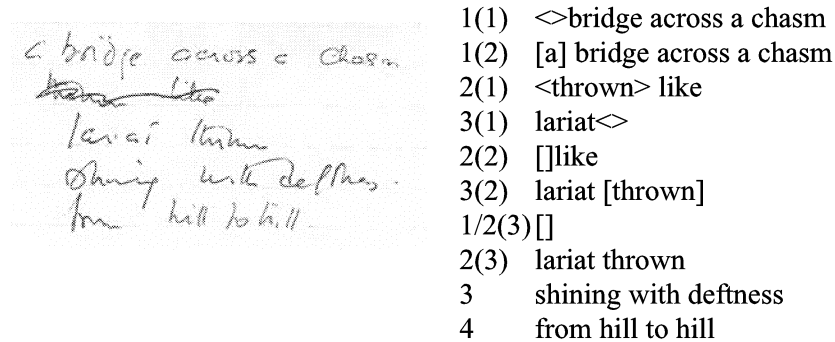 a bridge across a chasm
thrown like
lariat thrown
shining with deftness.
from hill to hill
1(1) <>bridge across a chasm
1(2) [a] bridge across a chasm
2(1) <thrown> like
3(1) lariat<>
2(2) []like
3(2) lariat [thrown]
1/2(3)[]
2(3) lariat thrown
3 shining with deftness
4 from hill to hill